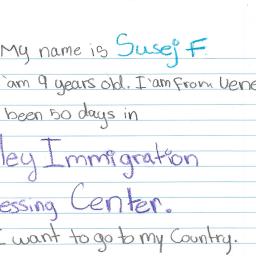 My name is Susej F
I'am 9 years old. I'am From Vene
been 50 days in
ley Immigration
essing Center.
I want to go to my Country.